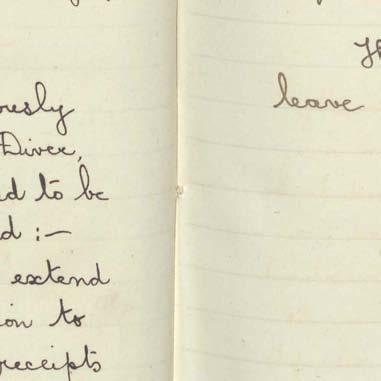 ously
Diver,
d to be
d :—
extend
ion to
receipts
Th
leave